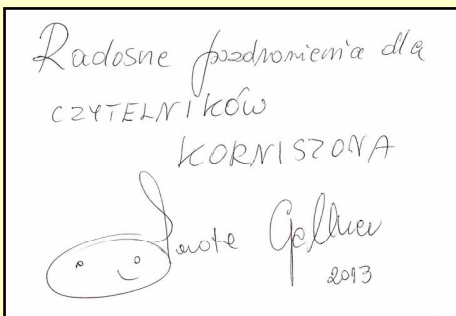 Radosne pozdrowienia dla
CZYTELNIKÓW
KORNISZONA
Dorota Gellner
2013